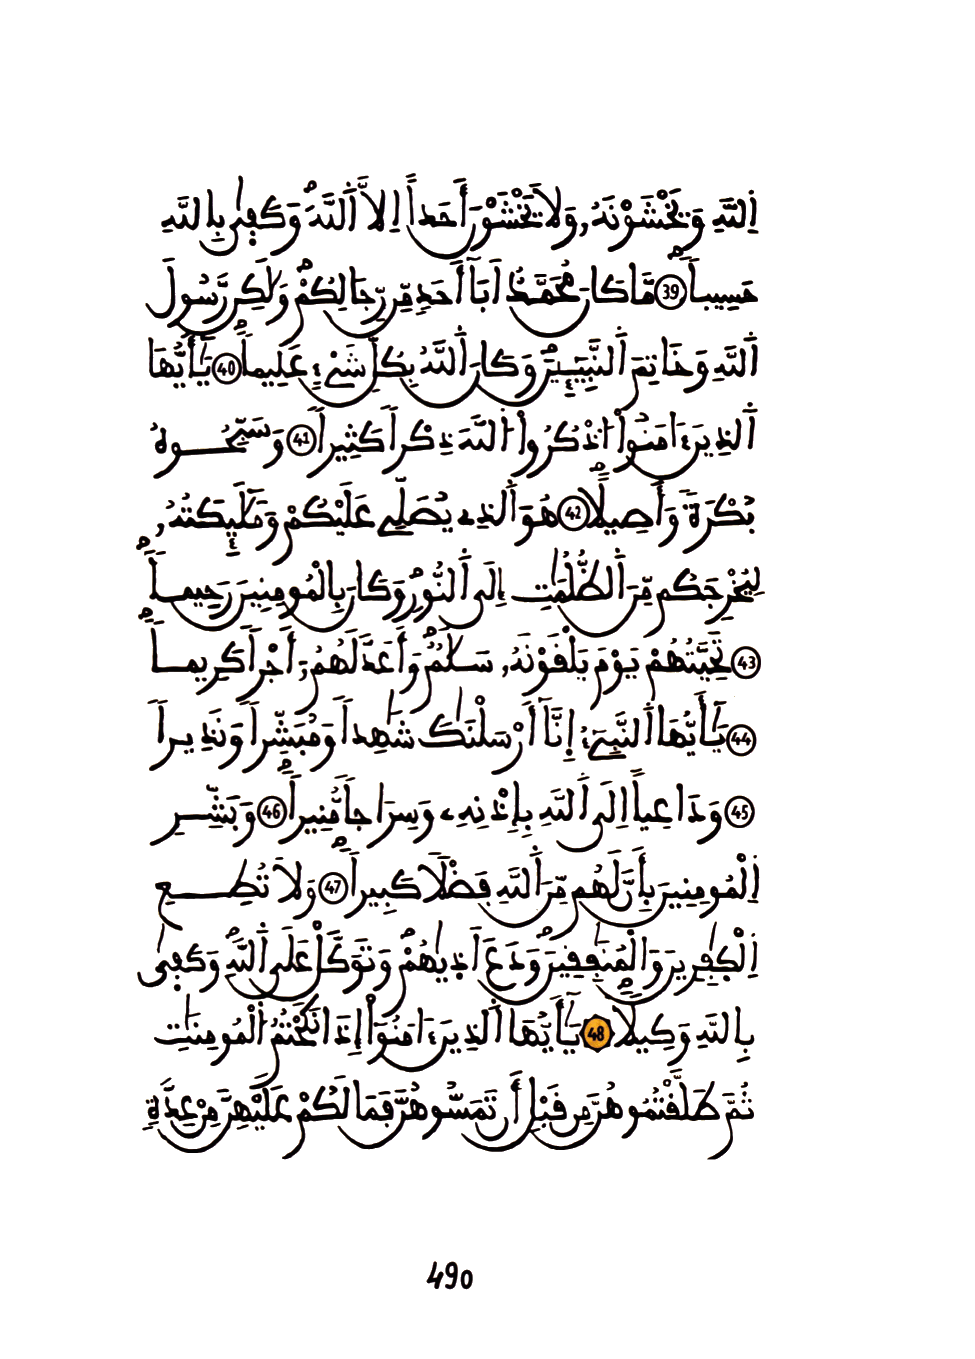 اِ۬للَّهِ وَيَخْشَوْنَهُۥ وَلَا يَخْشَوْنَ أَحَداً اِلَّا اَ۬للَّهَۖ وَكَف۪ىٰ بِاللَّهِ
حَسِيباٗۖ 39 مَّا كَانَ مُحَمَّدٌ اَبَآ أَحَدٖ مِّن رِّجَالِكُمْۖ وَلَٰكِن رَّسُولَ
اَ۬للَّهِ وَخَاتِمَ اَ۬لنَّبِيٓـِٕينَۖ وَكَانَ اَ۬للَّهُ بِكُلِّ شَےْءٍ عَلِيماٗۖ 40 يَٰٓأَيُّهَا
اَ۬لذِينَ ءَامَنُواْ اُ۟ذْكُرُواْ اُ۬للَّهَ ذِكْراٗ كَثِيراٗ 41 وَسَبِّحُوهُ
بُكْرَةٗ وَأَصِيلاًۖ 42 هُوَ اَ۬لذِے يُصَلِّے عَلَيْكُمْ وَمَلَٰٓئِكَتُهُۥ
لِيُخْرِجَكُم مِّنَ اَ۬لظُّلُمَٰتِ إِلَى اَ۬لنُّورِۖ وَكَانَ بِالْمُومِنِينَ رَحِيماٗۖ
43 تَحِيَّتُهُمْ يَوْمَ يَلْقَوْنَهُۥ سَلَٰمٞۖ وَأَعَدَّ لَهُمُۥٓ أَجْراٗ كَرِيماٗۖ
44 يَٰٓأَيُّهَا اَ۬لنَّبِےٓءُ إِنَّآ أَرْسَلْنَٰكَ شَٰهِداٗ وَمُبَشِّراٗ وَنَذِيراٗ
45 وَدَاعِياً اِلَى اَ۬للَّهِ بِإِذْنِهِۦ وَسِرَاجاٗ مُّنِيراٗۖ 46 وَبَشِّرِ
اِ۬لْمُومِنِينَ بِأَنَّ لَهُم مِّنَ اَ۬للَّهِ فَضْلاٗ كَبِيراٗۖ 47 وَلَا تُطِعِ
اِ۬لْكٰ۪فِرِينَ وَالْمُنَٰفِقِينَۖ وَدَعَ اَذ۪يٰهُمْۖ وَتَوَكَّلْ عَلَى اَ۬للَّهِۖ وَكَف۪ىٰ
بِاللَّهِ وَكِيلاٗۖ 48 يَٰٓأَيُّهَا اَ۬لذِينَ ءَامَنُوٓاْ إِذَا نَكَحْتُمُ اُ۬لْمُومِنَٰتِ
ثُمَّ طَلَّقْتُمُوهُنَّ مِن قَبْلِ أَن تَمَسُّوهُنَّ فَمَا لَكُمْ عَلَيْهِنَّ مِنْ عِدَّةٖ
490